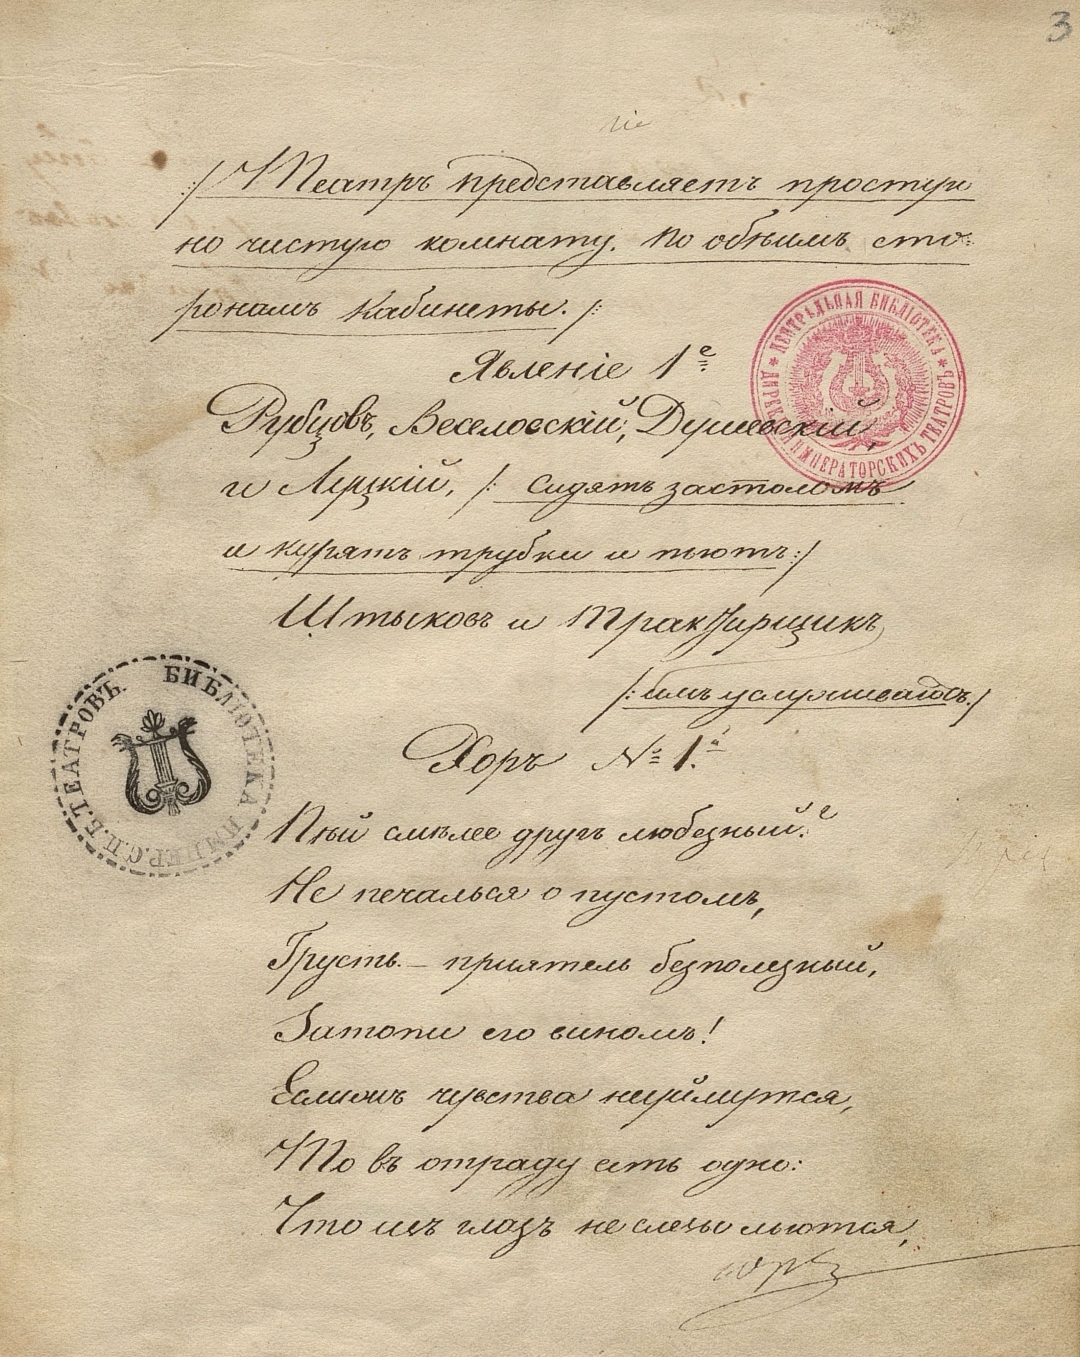 3
/: Театръ представляетъ простую
но чистую комнату. По обѣимъ сто=
ронамъ кабинеты. :/
Явленіе 1е.
Рубцовъ, Веселовскій, Душевскій,
и Лярскій, /: сидятъ за столомъ
и курятъ трубки и пьютъ :/
Штыковъ и Трактирщикъ,
/: имъ услуживаютъ. :/
ЦЕНТРАЛЬНАЯ БИБЛІОТЕКА * ДИРЕКЦІИ ИМПЕРАТОРСКИХЪ ТЕАТРОВЪ *
БИБЛІОТЕКА ИМПЕР. С.П.Б. ТЕАТРОВЪ.
Хоръ № 1.й
Пѣй смѣлее другъ любезный!
Не печалься о пустомъ,
Грусть – приятель безполезный,
Затопи его виномъ!
Еслижъ чувства неуймутся,
То въ отраду есть одно:
Что изъ глазъ не слезы льются,